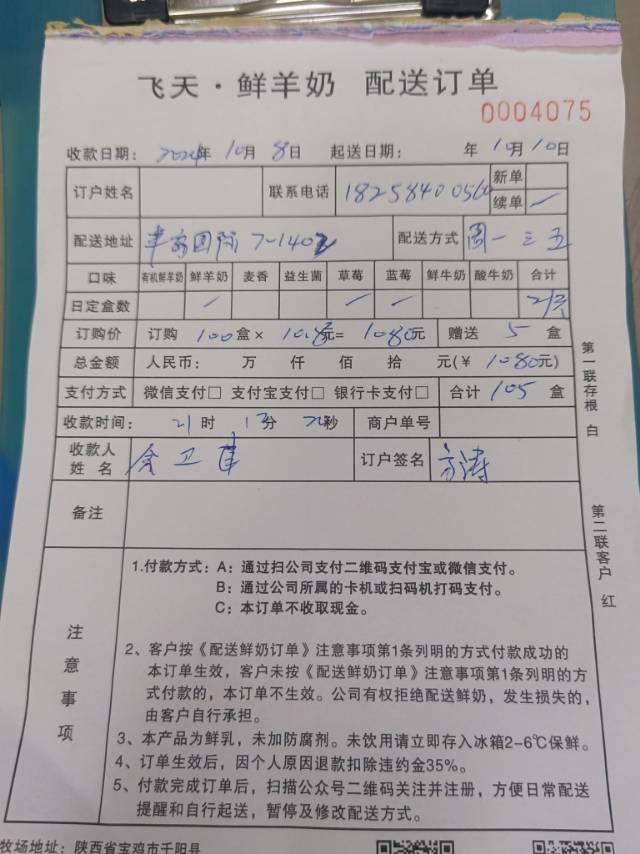 飞天·鲜羊奶 配送订单
0004075
收款日期： 2024年 10月 8日 起送日期： 年 10月 10日
订户姓名 联系电话 新单
续单 —
配送地址 7-1402 配送方式 周一 三 五
口味 有机鲜羊奶 鲜羊奶 麦香 益生菌 草莓 蓝莓 鲜牛奶 酸牛奶 合计
日定盒数 — — —
订购价 订购 100盒× 10.8元= 1080元 赠送 5 盒
总金额 人民币： 万 仟 佰 拾 元(¥ 1080元)
支付方式 微信支付□ 支付宝支付□ 银行卡支付□ 合计 105 盒
收款时间： 21时 分 秒 商户单号
收款人
姓名 订户签名 方涛
备注
注意事项
1.付款方式：A：通过扫公司支付二维码支付宝或微信支付。
B：通过公司所属的卡机或扫码机打码支付。
C：本订单不收取现金。
2、客户按《配送鲜奶订单》注意事项第1条列明的方式付款成功的
本订单生效，客户未按《配送鲜奶订单》注意事项第1条列明的方
式付款的，本订单不生效。公司有权拒绝配送鲜奶，发生损失的，
由客户自行承担。
3、本产品为鲜乳，未加防腐剂。未饮用请立即存入冰箱2-6℃保鲜。
4、订单生效后，因个人原因退款扣除违约金35%。
5、付款完成订单后，扫描公众号二维码关注并注册，方便日常配送
提醒和自行起送，暂停及修改配送方式。
第一联存根 白
第二联客户 红
牧场地址：陕西省宝鸡市千阳县